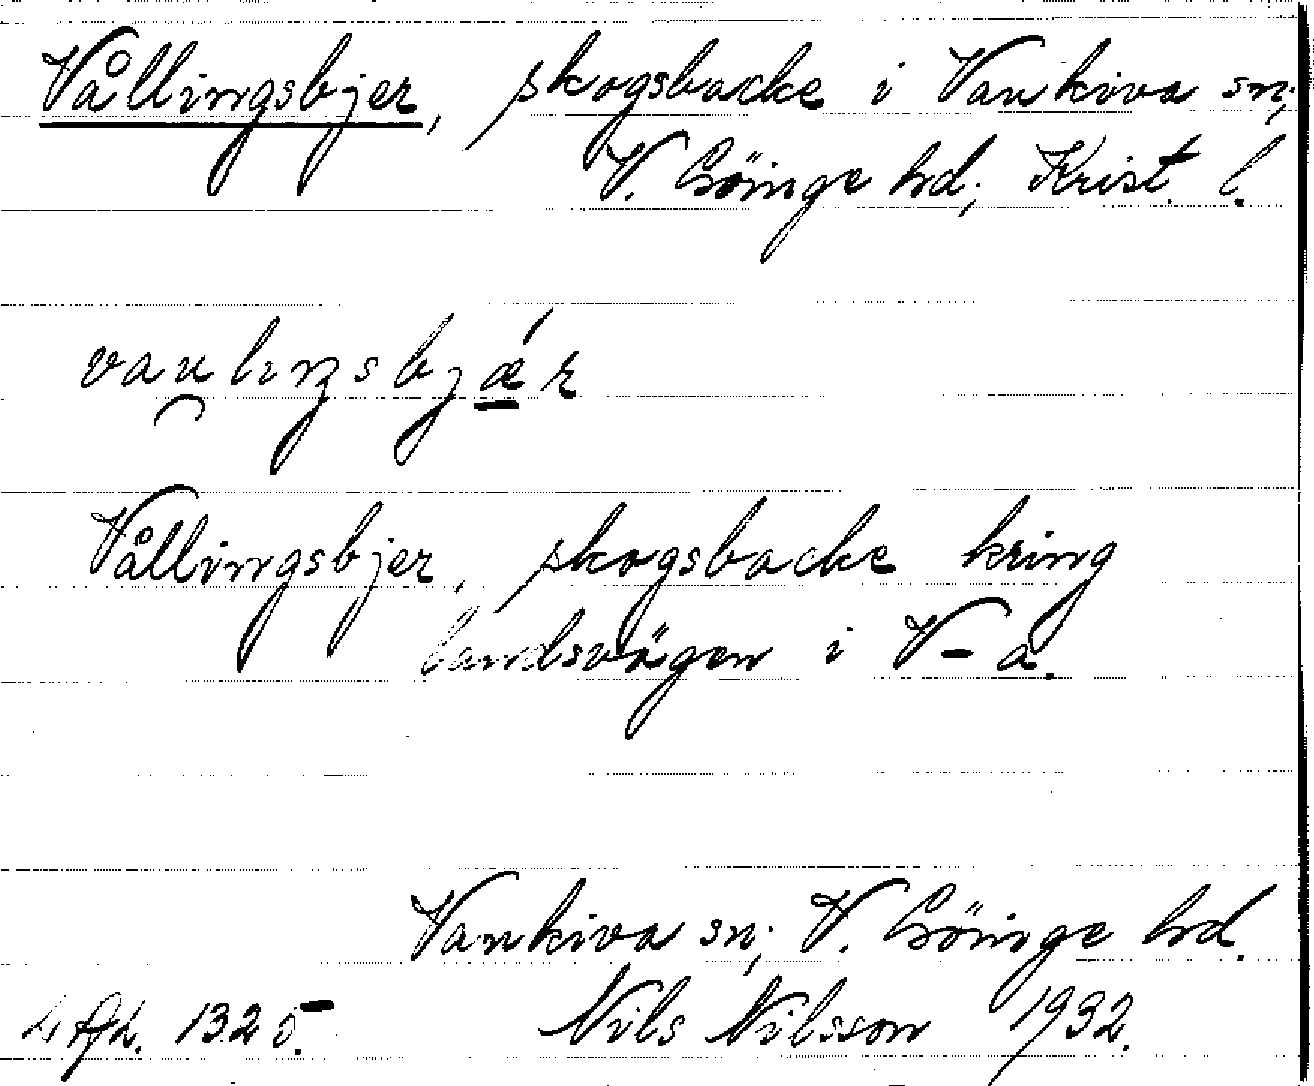 Vållingsbjer, skogsbacke i Vankiva sn;
V. Göinge hd; Krist. l.
vau̯liŋsbjǽr
Vållingsbjer, skogsbacke kring
landsvägen i V-a.
Vankiva sn; V. Göinge hd.
Nils Nilsson 1932.